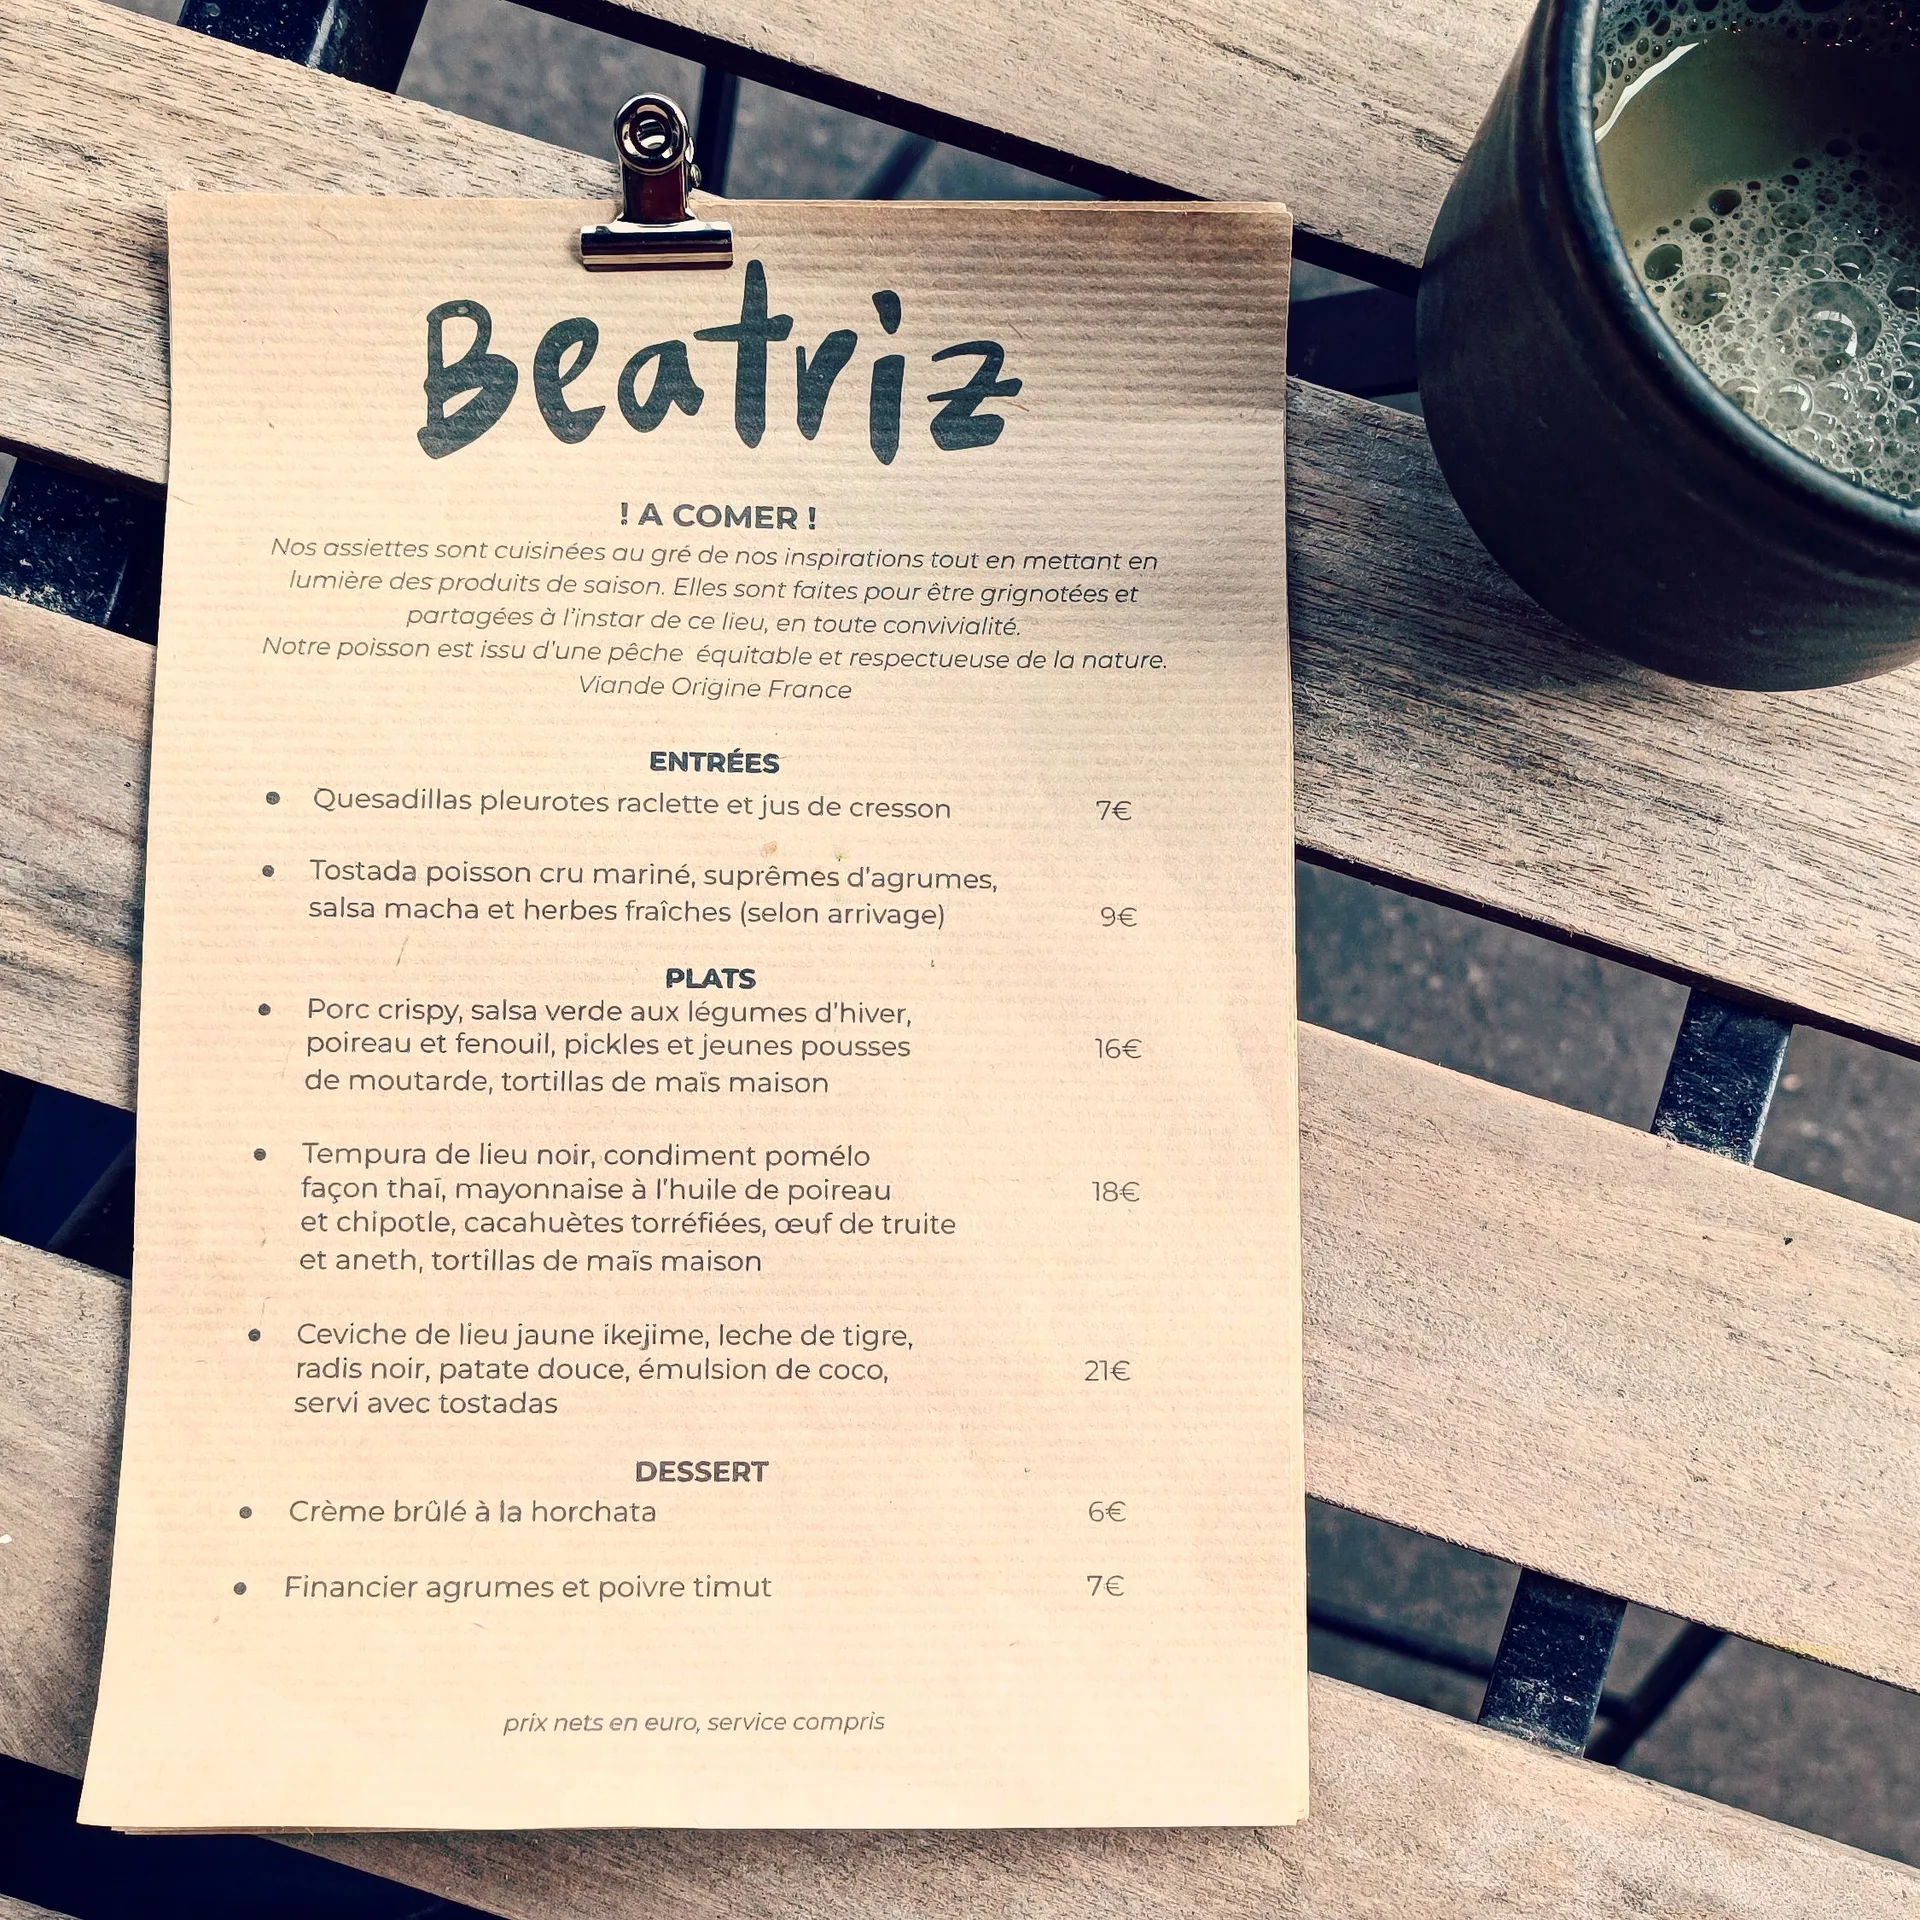 Beatriz
! A COMER !
Nos assiettes sont cuisinées au gré de nos inspirations tout en mettant en
lumière des produits de saison. Elles sont faites pour être grignotées et
partagées à l'instar de ce lieu, en toute convivialité.
Notre poisson est issu d'une pêche équitable et respectueuse de la nature.
Viande Origine France
ENTRÉES
• Quesadillas pleurotes raclette et jus de cresson 7€
• Tostada poisson cru mariné, suprêmes d'agrumes,
salsa macha et herbes fraîches (selon arrivage) 9€
PLATS
• Porc crispy, salsa verde aux légumes d'hiver,
poireau et fenouil, pickles et jeunes pousses 16€
de moutarde, tortillas de maïs maison
• Tempura de lieu noir, condiment pomélo
façon thaï, mayonnaise à l'huile de poireau 18€
et chipotle, cacahuètes torréfiées, œuf de truite
et aneth, tortillas de maïs maison
• Ceviche de lieu jaune ikejime, leche de tigre,
radis noir, patate douce, émulsion de coco, 21€
servi avec tostadas
DESSERT
• Crème brûlé à la horchata 6€
• Financier agrumes et poivre timut 7€
prix nets en euro, service compris